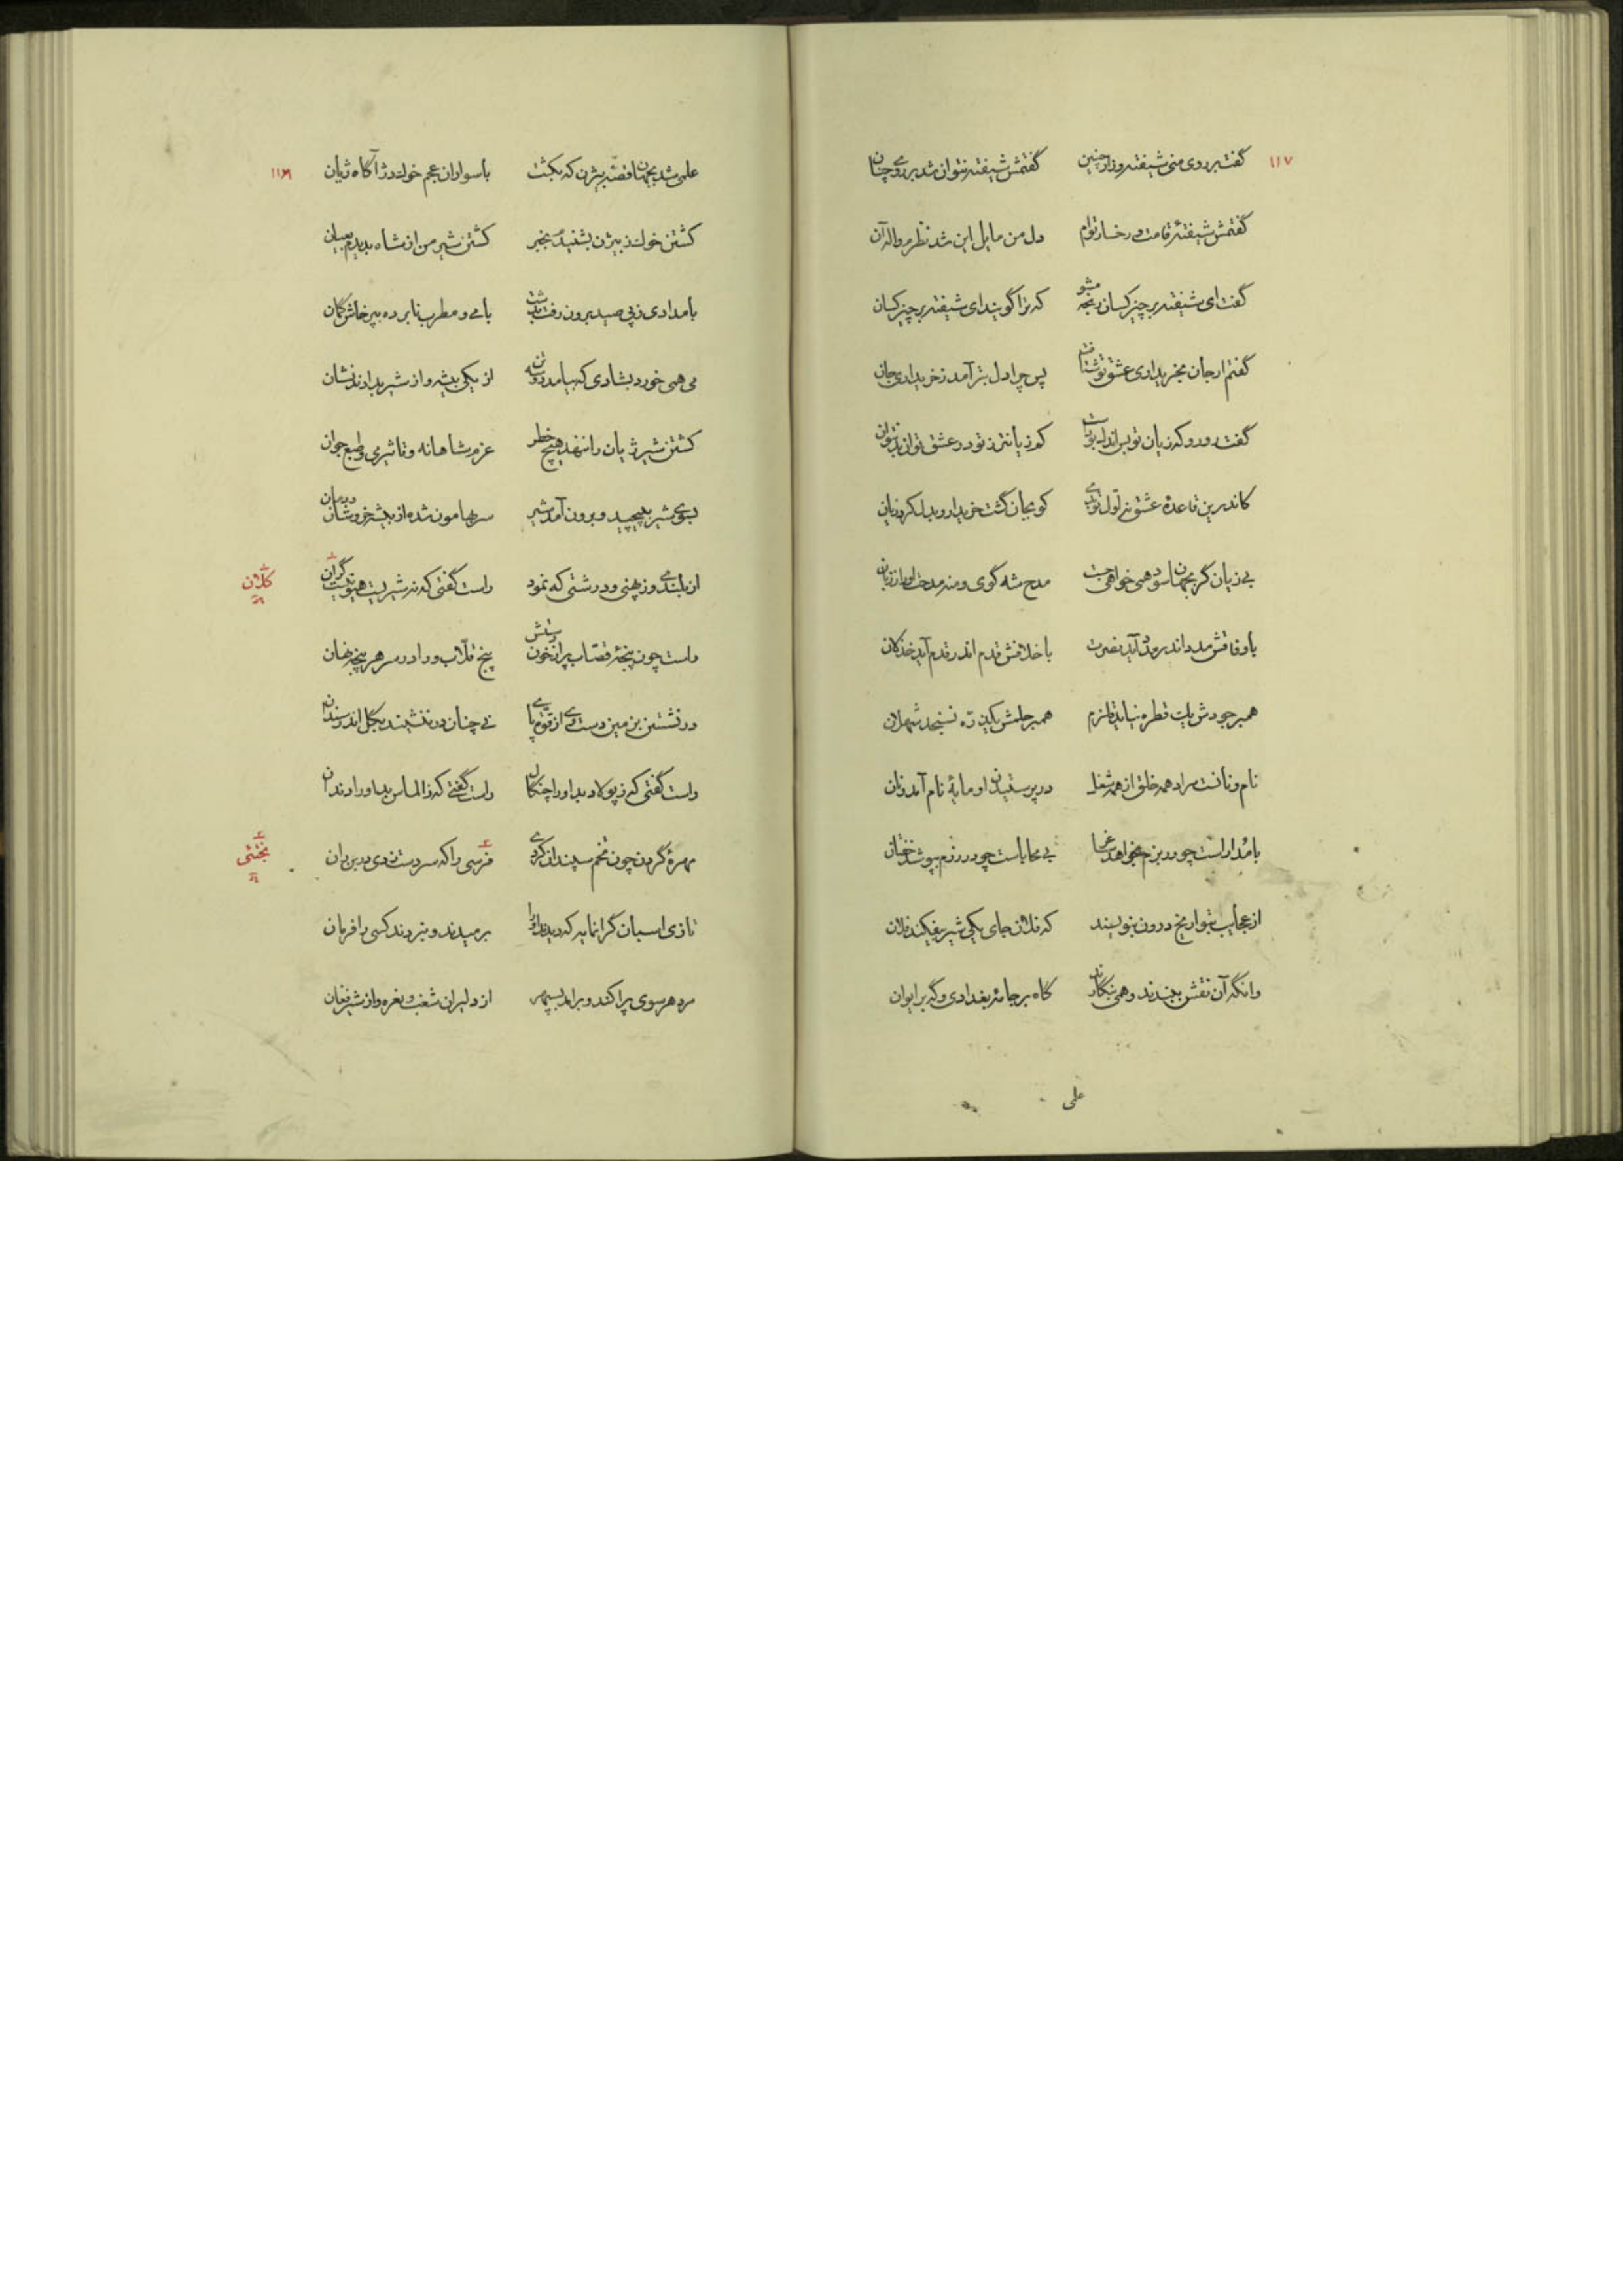 ۱۱۷
گفت بر روی منی شیفته و زار چنین گفتمش شیفته نتوان شد بر روی چنان
گفتمش شیفتهٔ قامت و رخسار توام دل من مایل این شد نظرم واله آن
گفت ای شیفته بر چیز کسان رنجه مشو که ترا گویند ای شیفته بر چیز کسان
گفتم ار جان بخریداری عشق تو شتافت پس چرا دل بتر آمد ز خریداری جان
گفت رو رو که زیان تو بس اندک بودست کو زیانتر ز تو در عشق توان دید توان
کاندرین قاعدهٔ عشق نه اول توئی کو بجان گشت خریدار و بدل کرد زیان
بی زیان گر بجهان سود همی خواهی جست مدح شه گوی و منه مدحت او را ز زبان
با وفاقش مدد اندر مدد آید نصرت با خلافش قدم اندر قدم آید خذلان
همبر جودش یک قطره نیاید قلزم همبر حلمش یک ذره نسنجد شهلان
نام و نانست مراد همه خلق از همه شغل در پرستیدن او مایهٔ نام آمد و نان
با مداراست چو در بزم بخواهد بی محاباست چو در رزم بپوشد خفتان
از عجایب بتواریخ درون بنویسند که فلان جای یکی شیر بیفکند فلان
وانگه آن نقش ببندند و همی بنگارند گاه بر جامهٔ بغدادی و گه بر ایوان
علی
۱۱۸
علمی شد بجهان قصّهٔ بیژن که بکشت با سواران عجم خوک دژ آگاه ژیان
کشتن خوک ز بیژن بشنیدم بخبر کشتن شیر من از شاه بدیدم بعیان
بامدادی ز پی صید برون رفت بدشت با می و مطرب نابرده بپرخاش گمان
می همی خورد بشادی که بیامد دوسه تن از یکی بیشه و از شیر بدادند نشان
کشتن شیر ژیان را ننهد هیچ خطر عزم شاهانه و تاثیر می و طبع جوان
بسوی شیر بپیچید و برون آمد شیر سر بهامون شده از بیشه خروشان و دمان
از بلندی و ز پهنی و درشتی که نمود راست گفتی که نه شیریست هیونیست گران
کلان
راست چون پنجهٔ قصّاب پر از خون دستش پنج قلّاب ورا در سر هر پنجه نهان
در نشستن بزمین دست وی از قوت پای نی چنان در ننشیند بگل اندر سندان
راست گفتی که ز پولاد بد او را چنگال راست گفتی که ز الماس بد او را دندان
مهرهٔ گردن چون تخم سپندان کردی فرسی را که سر دست زدی بر بر ران
بختئی
تازی اسبان گرانمایه که دیدند او را برمیدند و نبردند کسی را فرمان
مرد هر سوی پراکند و برآمد بسپهر از دلیران شغب و نعره و از شیر فغان